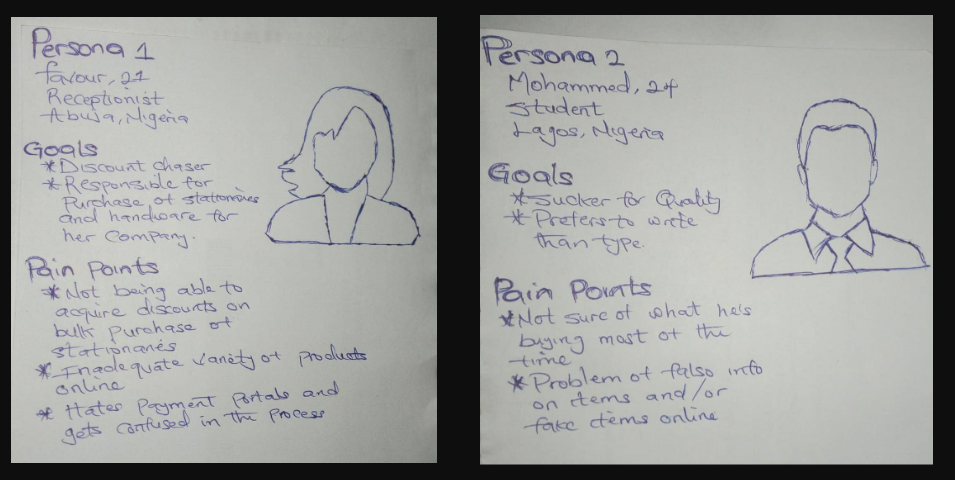 Persona 1
Favour, 21
Receptionist
Abuja, Nigeria
Goals
* Discount chaser
* Responsible for
Purchase of stationaries
and handware for
her Company.
Pain Points
* Not being able to
acquire discounts on
bulk purchase of
stationaries
* Inadequate variety of products
online
* Hates Payment Portals and
gets confused in the process
Persona 2
Mohammed, 24
Student
Lagos, Nigeria
Goals
* Sucker for Quality
* Prefers to write
than type.
Pain Points
* Not sure of what he's
buying most of the
time
* Problem of falso info
on items and/or
fake items online